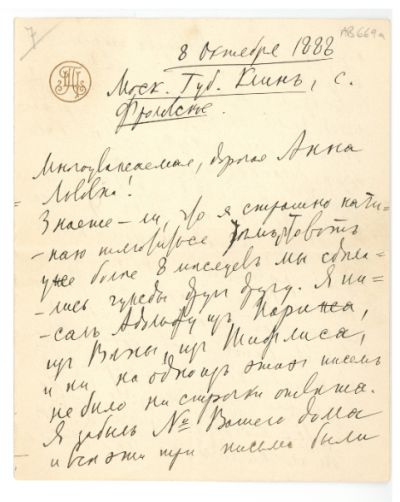 7
АВ 669а
8 Октября 1888
Моск. Губ. Клинъ, с.
Фроловское.
Многоуважаемая, дорогая Анна
Львовна!
Знаете-ли, что я страшно начи-
-наю
уже более 8 месяцевъ мы сдела-
-лись чужды другъ другу. Я пи-
-салъ Адольфу изъ Парижа,
изъ Вены, изъ Тифлиса,
и ни на одно изъ этихъ писемъ
не было ни строчки ответа.
Я забылъ № Вашего дома
и все эти три письма были